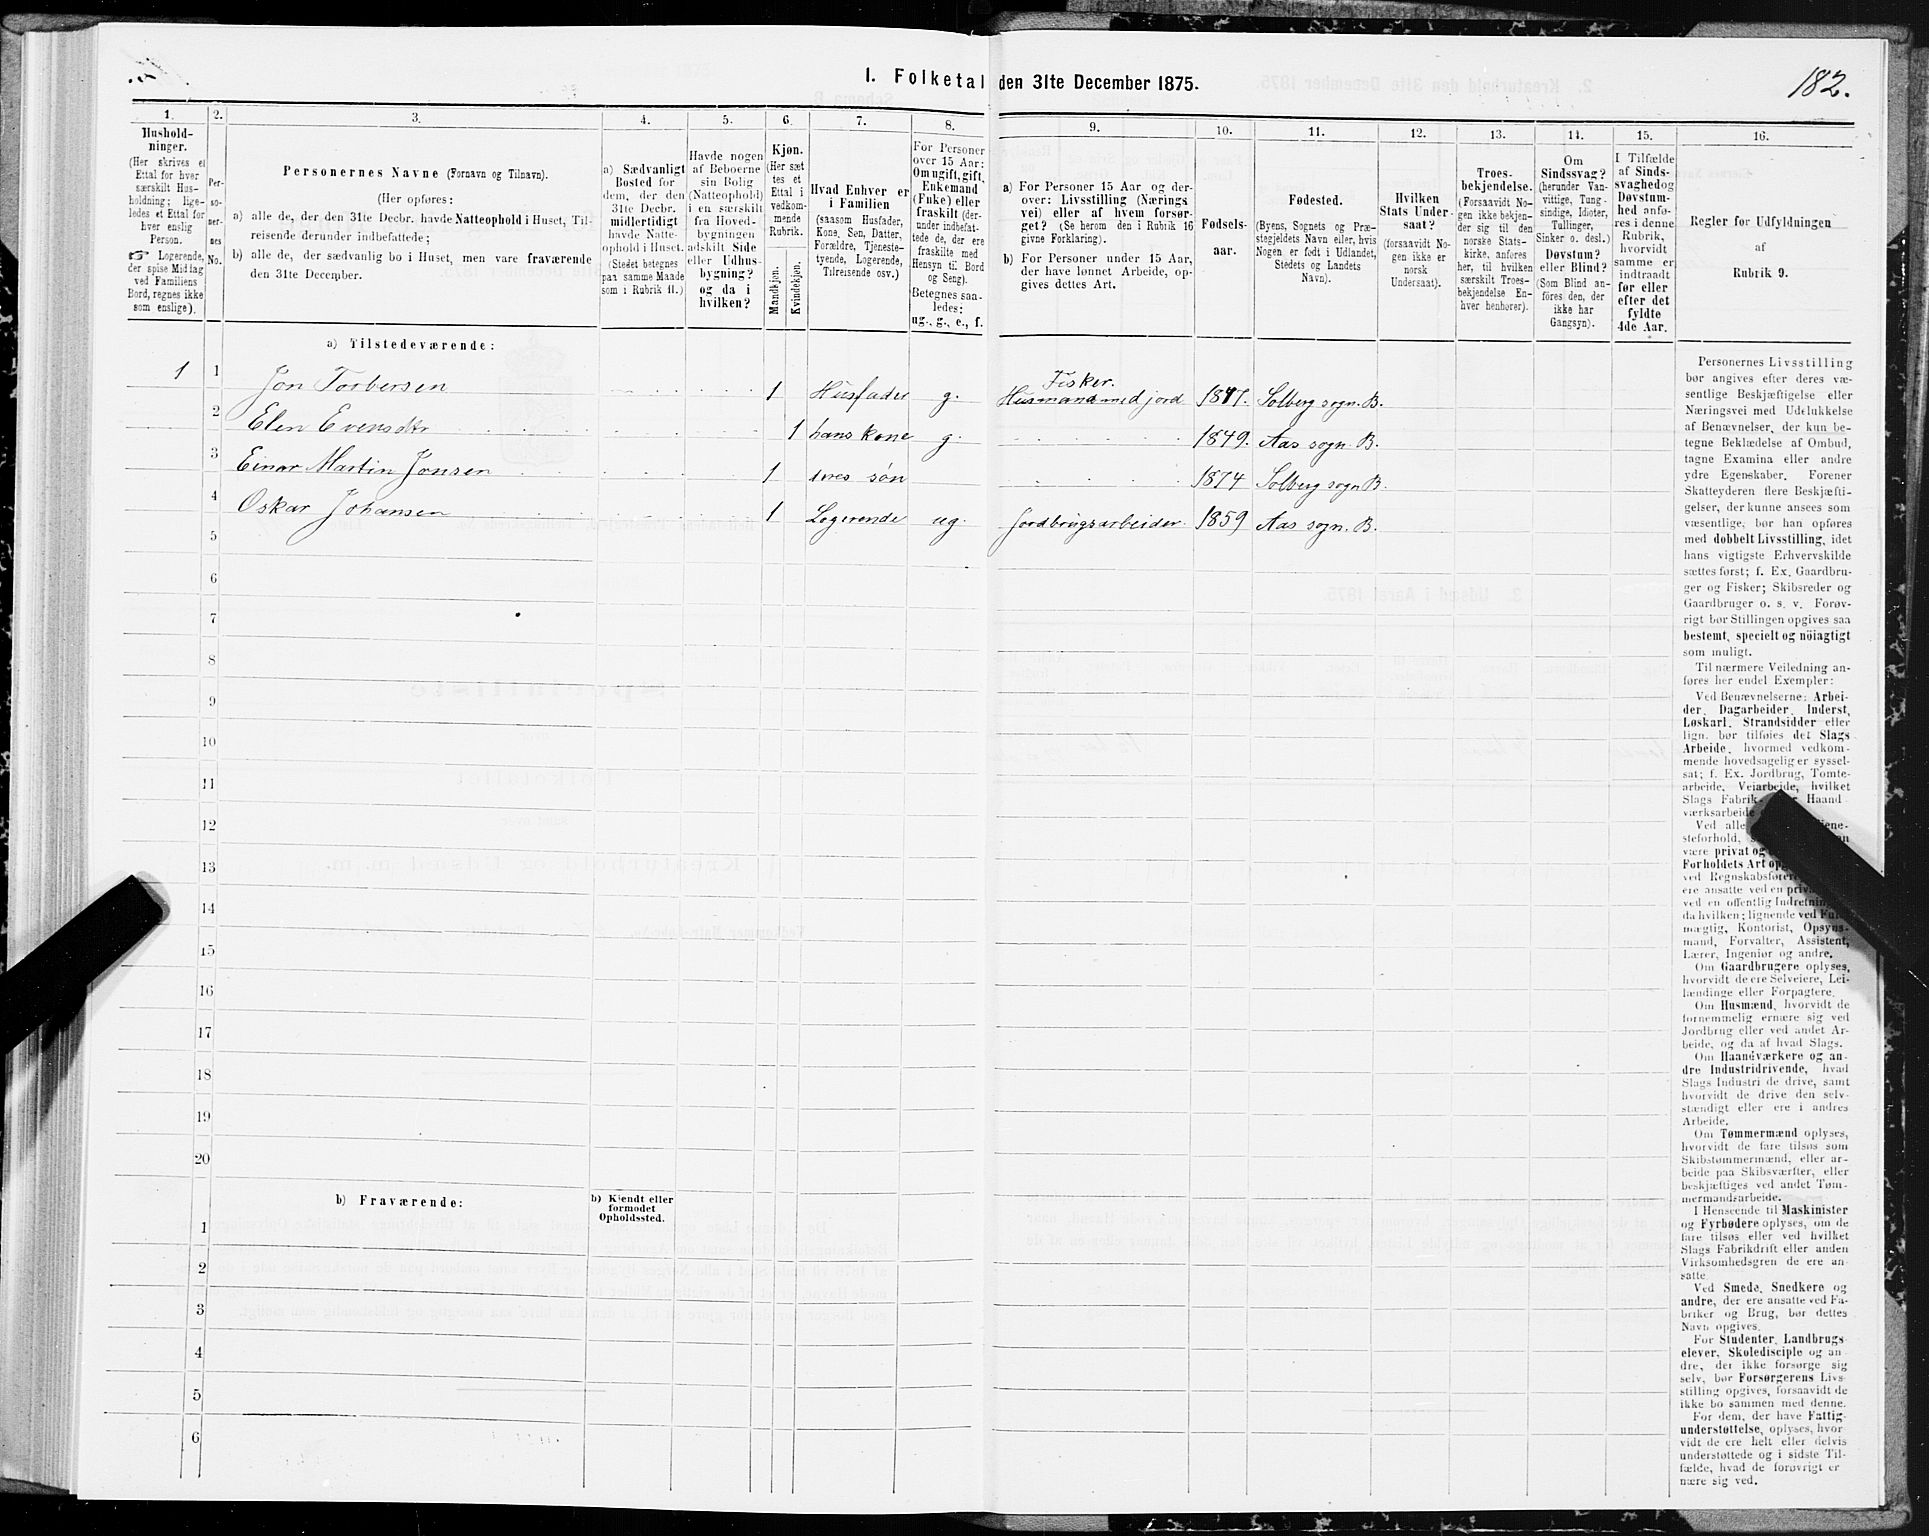 1. Folketal den 31te December 1875.
182.
1.
Hushold-
ninger.
(Her skrives et
Ettal for hver
særskilt Hus-
holdning; lige-
ledes et Ettal for
hver enslig
Person.
☞ Logerende,
der spise Middag
ved Familiens
Bord, regnes ikke
som enslige).
2.
Per-
so-
ner-
nes
No.
3.
Personernes Navne (Fornavn og Tilnavn).
(Her opføres:
a) alle de, der den 31te Decbr. havde Natteophold i Huset, Til-
reisende derunder indbefattede;
b) alle de, der sædvanlig bo i Huset, men vare fraværende
den 31te December.
4.
a) Sædvanligt
Bosted for
dem, der den
31te Decbr.
midlertidigt
havde Natte-
ophold i Huset.
(Stedet betegnes
paa samme Maade
som i Rubrik 11.)
5.
Havde nogen
af Beboerne
sin Bolig
(Natteophold)
i en særskilt
fra Hoved-
bygningen
adskilt Side
eller Udhus-
bygning?
og da i
hvilken?
6.
Kjøn.
(Her sæt
tes et
Ettal i
vedkom-
mende
Rubrik.
Mandkjøn.
Kvindekjøn.
7.
Hvad Enhver er
i Familien
(saasom Husfader,
Kone, Søn, Datter,
Forældre, Tjeneste-
tyende, Logerende,
Tilreisende osv.)
8.
For Personer
over 15 Aar:
Om ugift, gift,
Enkemand
(Enke) eller
fraskilt (der-
under indbefat-
tede de, der ere
fraskilte med
Hensyn til Bord
og Seng).
Betegnes saa-
ledes:
ug., g., e., f.
9.
a) For Personer 15 Aar og der-
over: Livsstilling (Nærings
vei) eller af hvem forsør-
get? (Se herom den i Rubrik 16
givne Forklaring).
b) For Personer under 15 Aar,
der have lønnet Arbeide, op-
gives dettes Art.
10.
Fødsels-
aar.
11.
Fødested.
(Byens, Sognets og Præ-
stegjeldets Navn eller, hvis
Nogen er født i Udlandet,
Stedets og Landets
Navn).
12.
Hvilken
Stats Under-
saat?
(forsaavidt No-
gen ikke er
norsk
Undersaat).
13.
Troes-
bekjendelse.
(Forsaavidt No-
gen ikke bekjen-
der sig til den
norske Stats-
kirke, anføres
her, til hvilken
særskilt Troes-
bekjendelse En-
hver henhører).
14.
Om
Sindssvag?
(herunder Van-
vittige, Tung-
sindige, Idioter,
Tullinger,
Sinker o. desl.)
Døvstum?
eller Blind?
(Som Blind an-
føres den, der
ikke har
Gangsyn).
15.
I Tilfælde
af Sinds-
svaghed og
Døvstum-
hed anfø-
res i denne
Rubrik,
hvorvidt
samme er
indtraadt
før eller
efter det
fyldte
4de Aar.
16.
Regler for Udfyldningen
af
Rubrik 9.
a) Tilstedeværende:
1 1 Jon Torbersen 1 Husfader g. Fisker.
Husmand med jord 1847. Solberg sogn. B.
2 Elen Evensdtr 1 hans kone g. 1849. Aas sogn. B.
3 Einar Martin Jonsen 1 søn 1874 Solberg sogn B.
4 Oskar Johansen 1 Logerende ug. Jordbrugsarbeider. 1859 Aas sogn. B.
5
6
7
8
9
10
11
12
13
14
15
16
17
18
19
20
b) Fraværende:
b) Kjendt eller
formodet
Opholdssted.
1
2
3
4
5
6
Personernes Livsstilling
bør angives efter deres væ-
sentlige Beskjæftigelse eller
Næringsvei med Udelukkelse
af Benævnelser, der kun be-
tegne Beklædelse af Ombud,
tagne Examina eller andre
ydre Egenskaber. Forener
Skatteyderen flere Beskjæfti-
gelser, der kunne ansees som
væsentlige, bør han opføres
med dobbelt Livsstilling, idet
hans vigtigste Erhvervskilde
sættes først; f. Ex. Gaardbru-
ger og Fisker; Skibsreder og
Gaardbruger o. s. v. Forøv-
rigt bør Stillingen opgives saa
bestemt, specielt og nöiagtigt
som muligt.
Til nærmere Veiledning an-
føres her endel Exempler:
Ved Benævnelserne: Arbei-
der, Dagarbeider, Inderst,
Løskarl, Strandsidder eller
lign. bør tilføies det Slags
Arbeide, hvormed vedkom-
mende hovedsagelig er syssel-
sat; f. Ex. Jordbrug, Tomte-
arbeide, Veiarbeide, hvilket
Slags Fabrik- Haand-
værksarbeide
Ved alle
steforhold,
være privat og
Forholdets Art
ved Regnskabsførere
ere ansatte ved en
ved en offentlig Indretning
da hvilken; lignende ved Fuld-
mægtig, Kontorist, Opsyns-
mand, Forvalter, Assistent,
Lærer, Ingeniør og andre.
Om Gaardbrugere oplyses,
hvorvidt de ere Selveiere, Lei-
lændinge eller Forpagtere.
Om Husmænd, hvorvidt de
fornemmelig ernære sig ved
Jordbrug eller ved andet Ar-
beide, og da af hvad Slags.
Om Haandværkere og an-
dre Industridrivende, hvad
Slags Industri de drive, samt
hvorvidt de drive den selv-
stændigt eller ere i andres
Arbeide.
Om Tømmermænd oplyses,
hvorvidt de fare tilsøs som
Skibstømmermænd, eller ar-
beide paa Skibsværfter, eller
beskjæftiges ved andet Tøm-
mermandsarbeide.
I Henseende til Maskinister
og Fyrbødere oplyses, om de
fare tilsøs eller ved hvilket
Slags Fabrikdrift eller anden
Virksomhedsgren de ere an-
satte
Ved Smede, Snedkere og
andre, der ere ansatte ved Fa-
briker og Brug, bør dettes
Navn opgives.
For Studenter, Landbrugs
elever, Skoledisciple og an
dre, der ikke forsørge sig
selv, bør Forsørgerens Livs-
stilling opgives, forsaavidt de
ikke bo sammen med denne.
For dem, der have Fattig-
understøttelse, oplyses, hvor-
vidt de ere helt eller delvis
understøttede og i sidste Til-
fælde, hvad de forøvrigt er
nære sig ved.